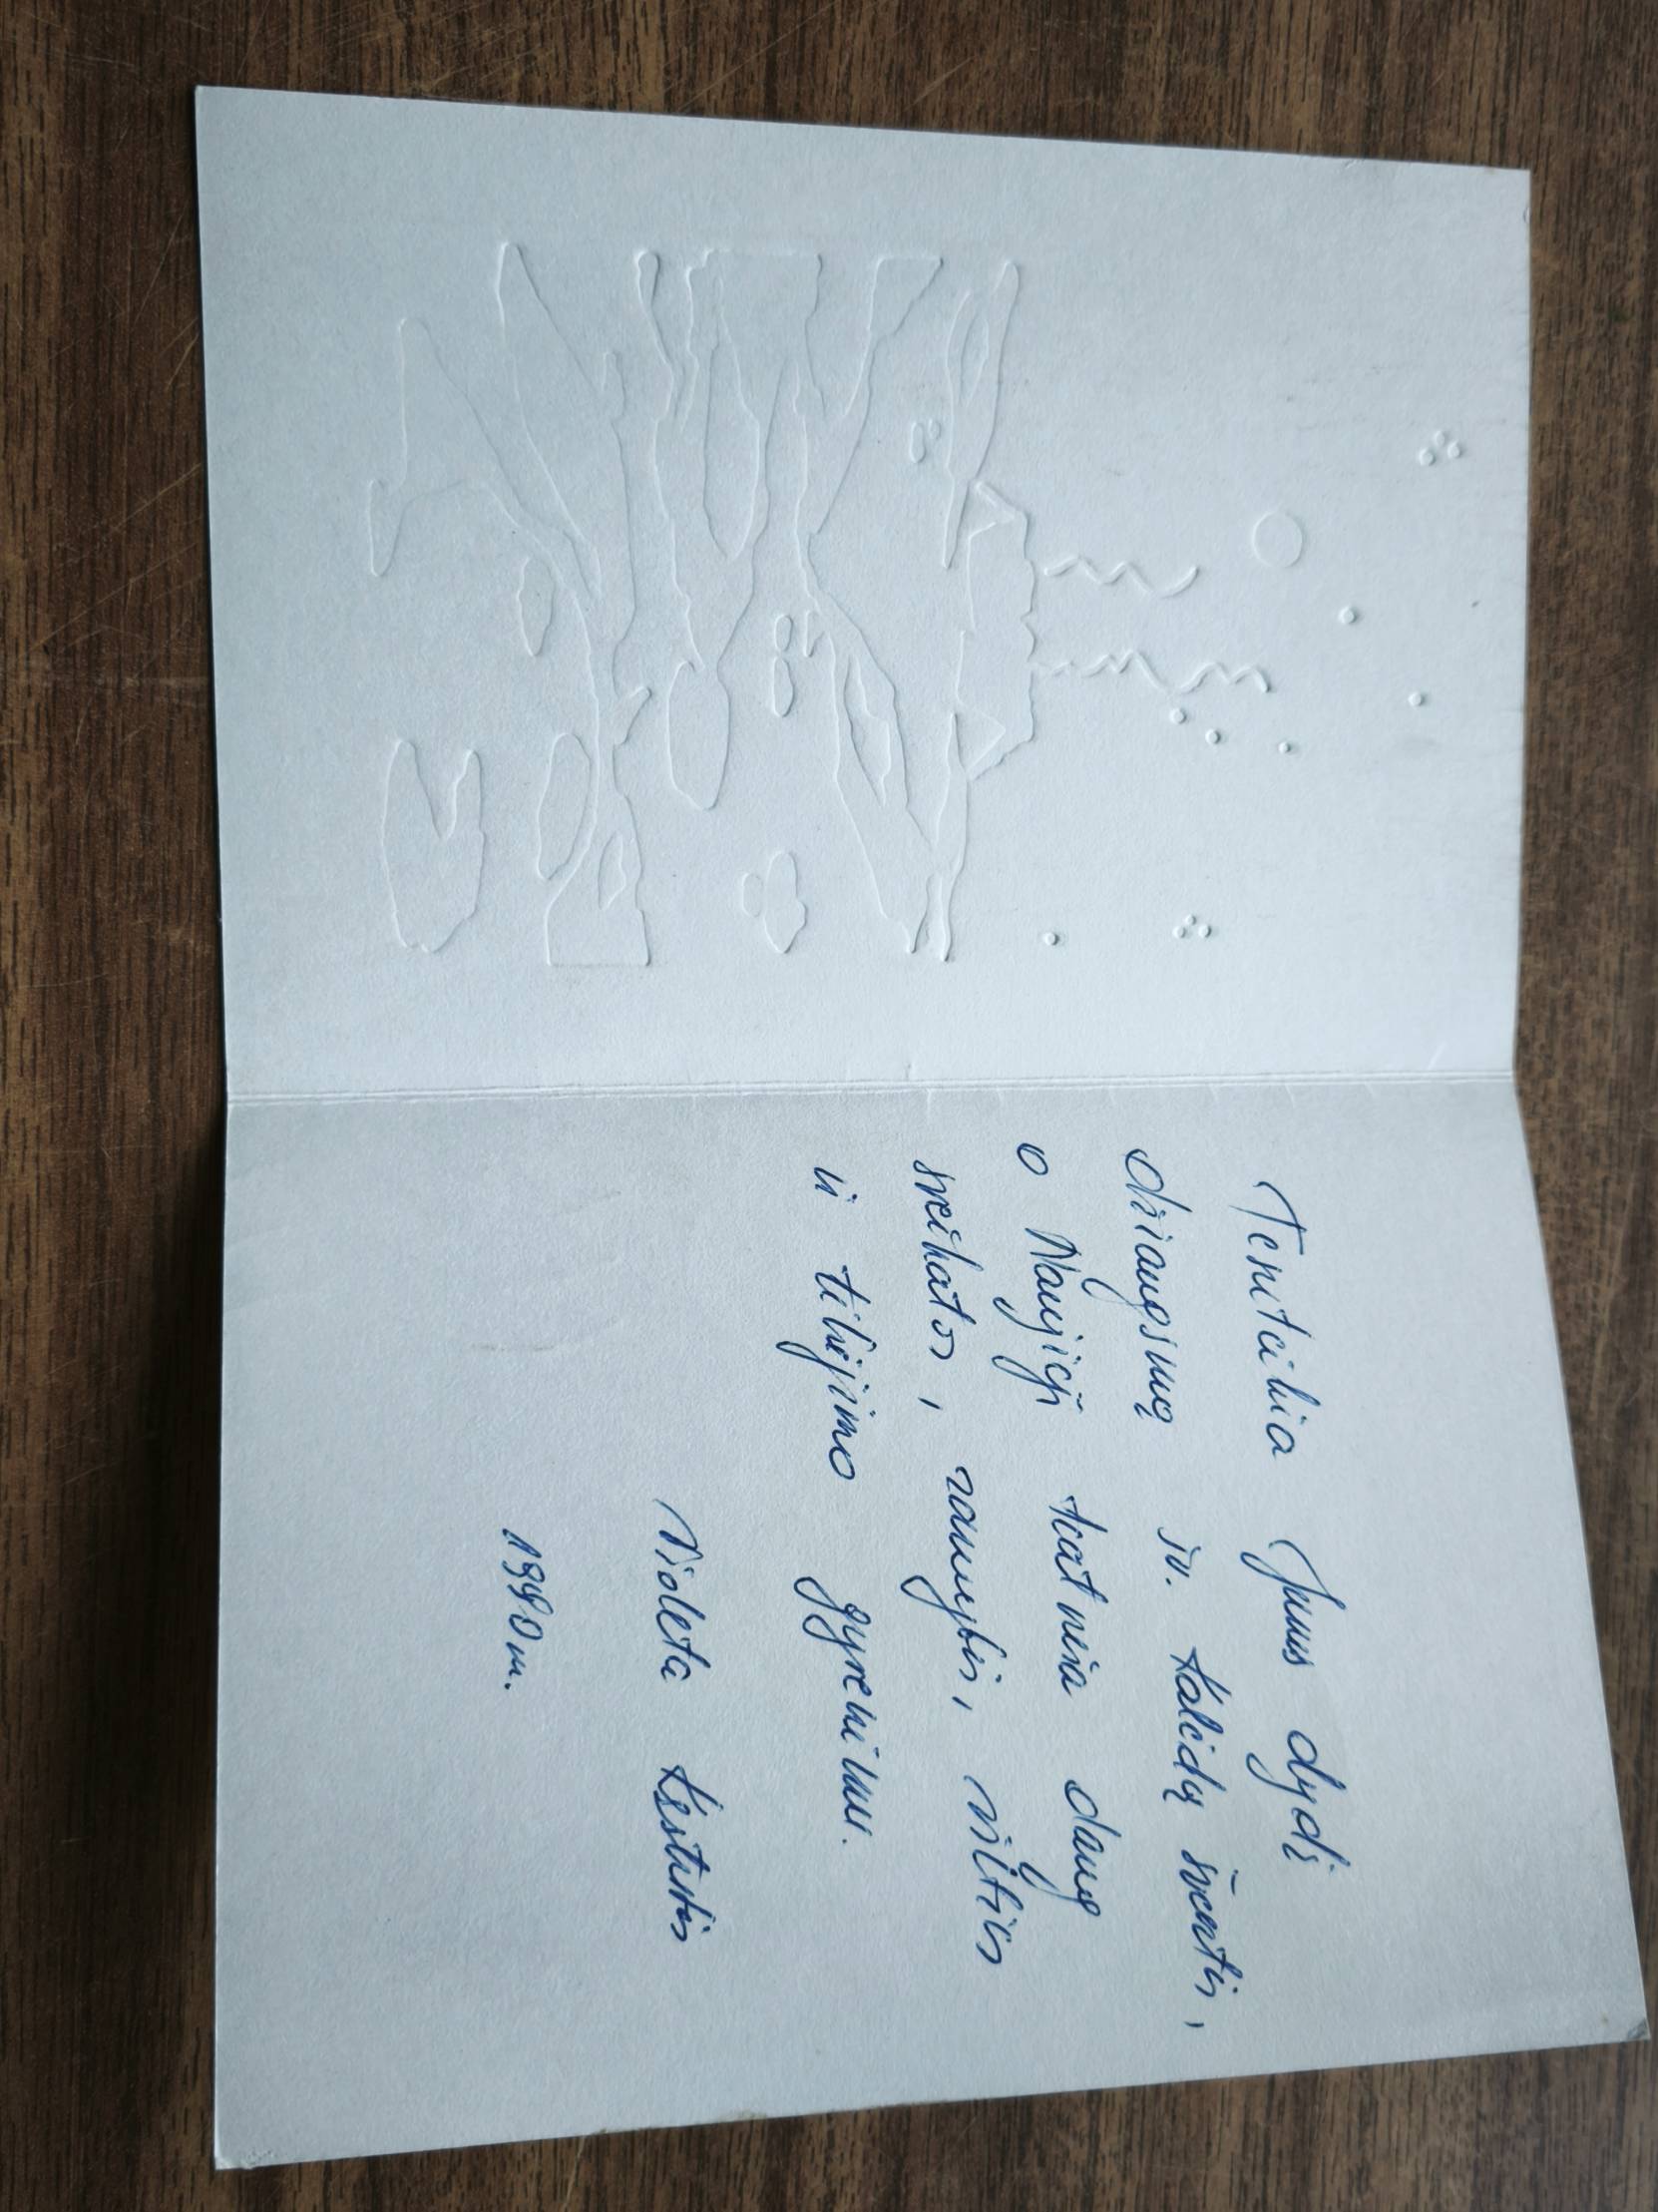 Tesuteikia Jums dydį
džiaugsmą šv. Kalėdų šventės,
o Naujieji teatneša daug
sveikatos, ramybės, vilties
ir tikėjimo gyvenimu.
Violeta Kęstutis
1990 m.